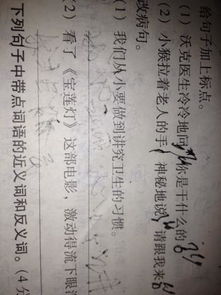 给句子加上标点。
(1) 沃克医生冷冷地问 你是干什么的
(2) 小猴拉着老人的手 神秘地说 请跟我来
改病句。
(1) 我们从小要做到讲究卫生的习惯。
(2) 看了《宝莲灯》这部电影，激动得流下眼
下列句子中带点词语的近义词和反义词。(4分